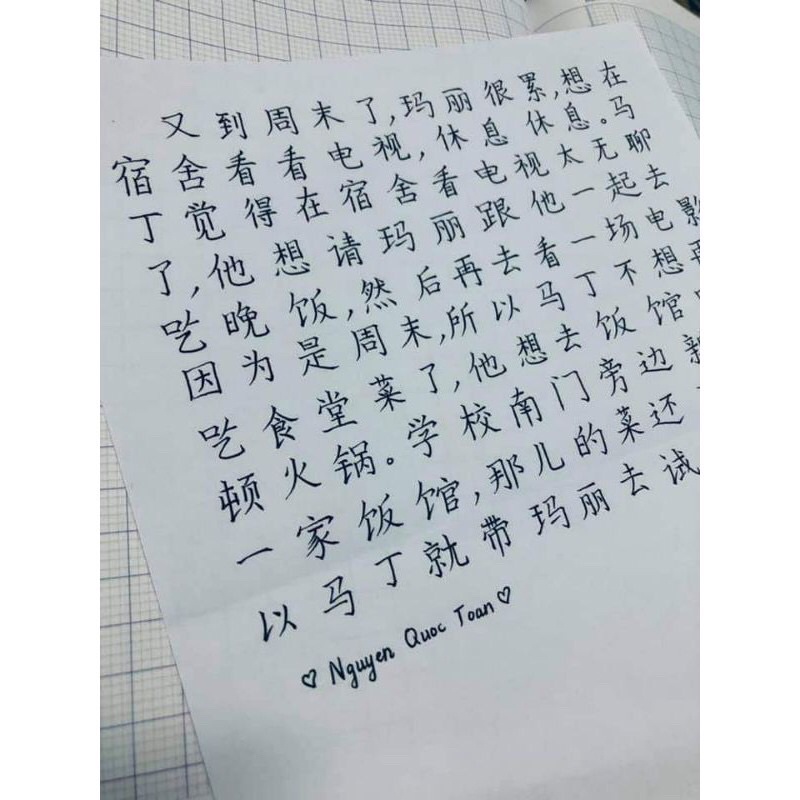 又到周末了,玛丽很累,想在
宿舍看看电视,休息休息。马
丁觉得在宿舍看电视太无聊
了,他想请玛丽跟他一起去
吃晚饭,然后再去看一场电影
因为是周末,所以马丁不想再
吃食堂菜了,他想去饭馆吃
顿火锅。学校南门旁边新
一家饭馆,那儿的菜还
以马丁就带玛丽去试
♡ Nguyen Quoc Toan ♡